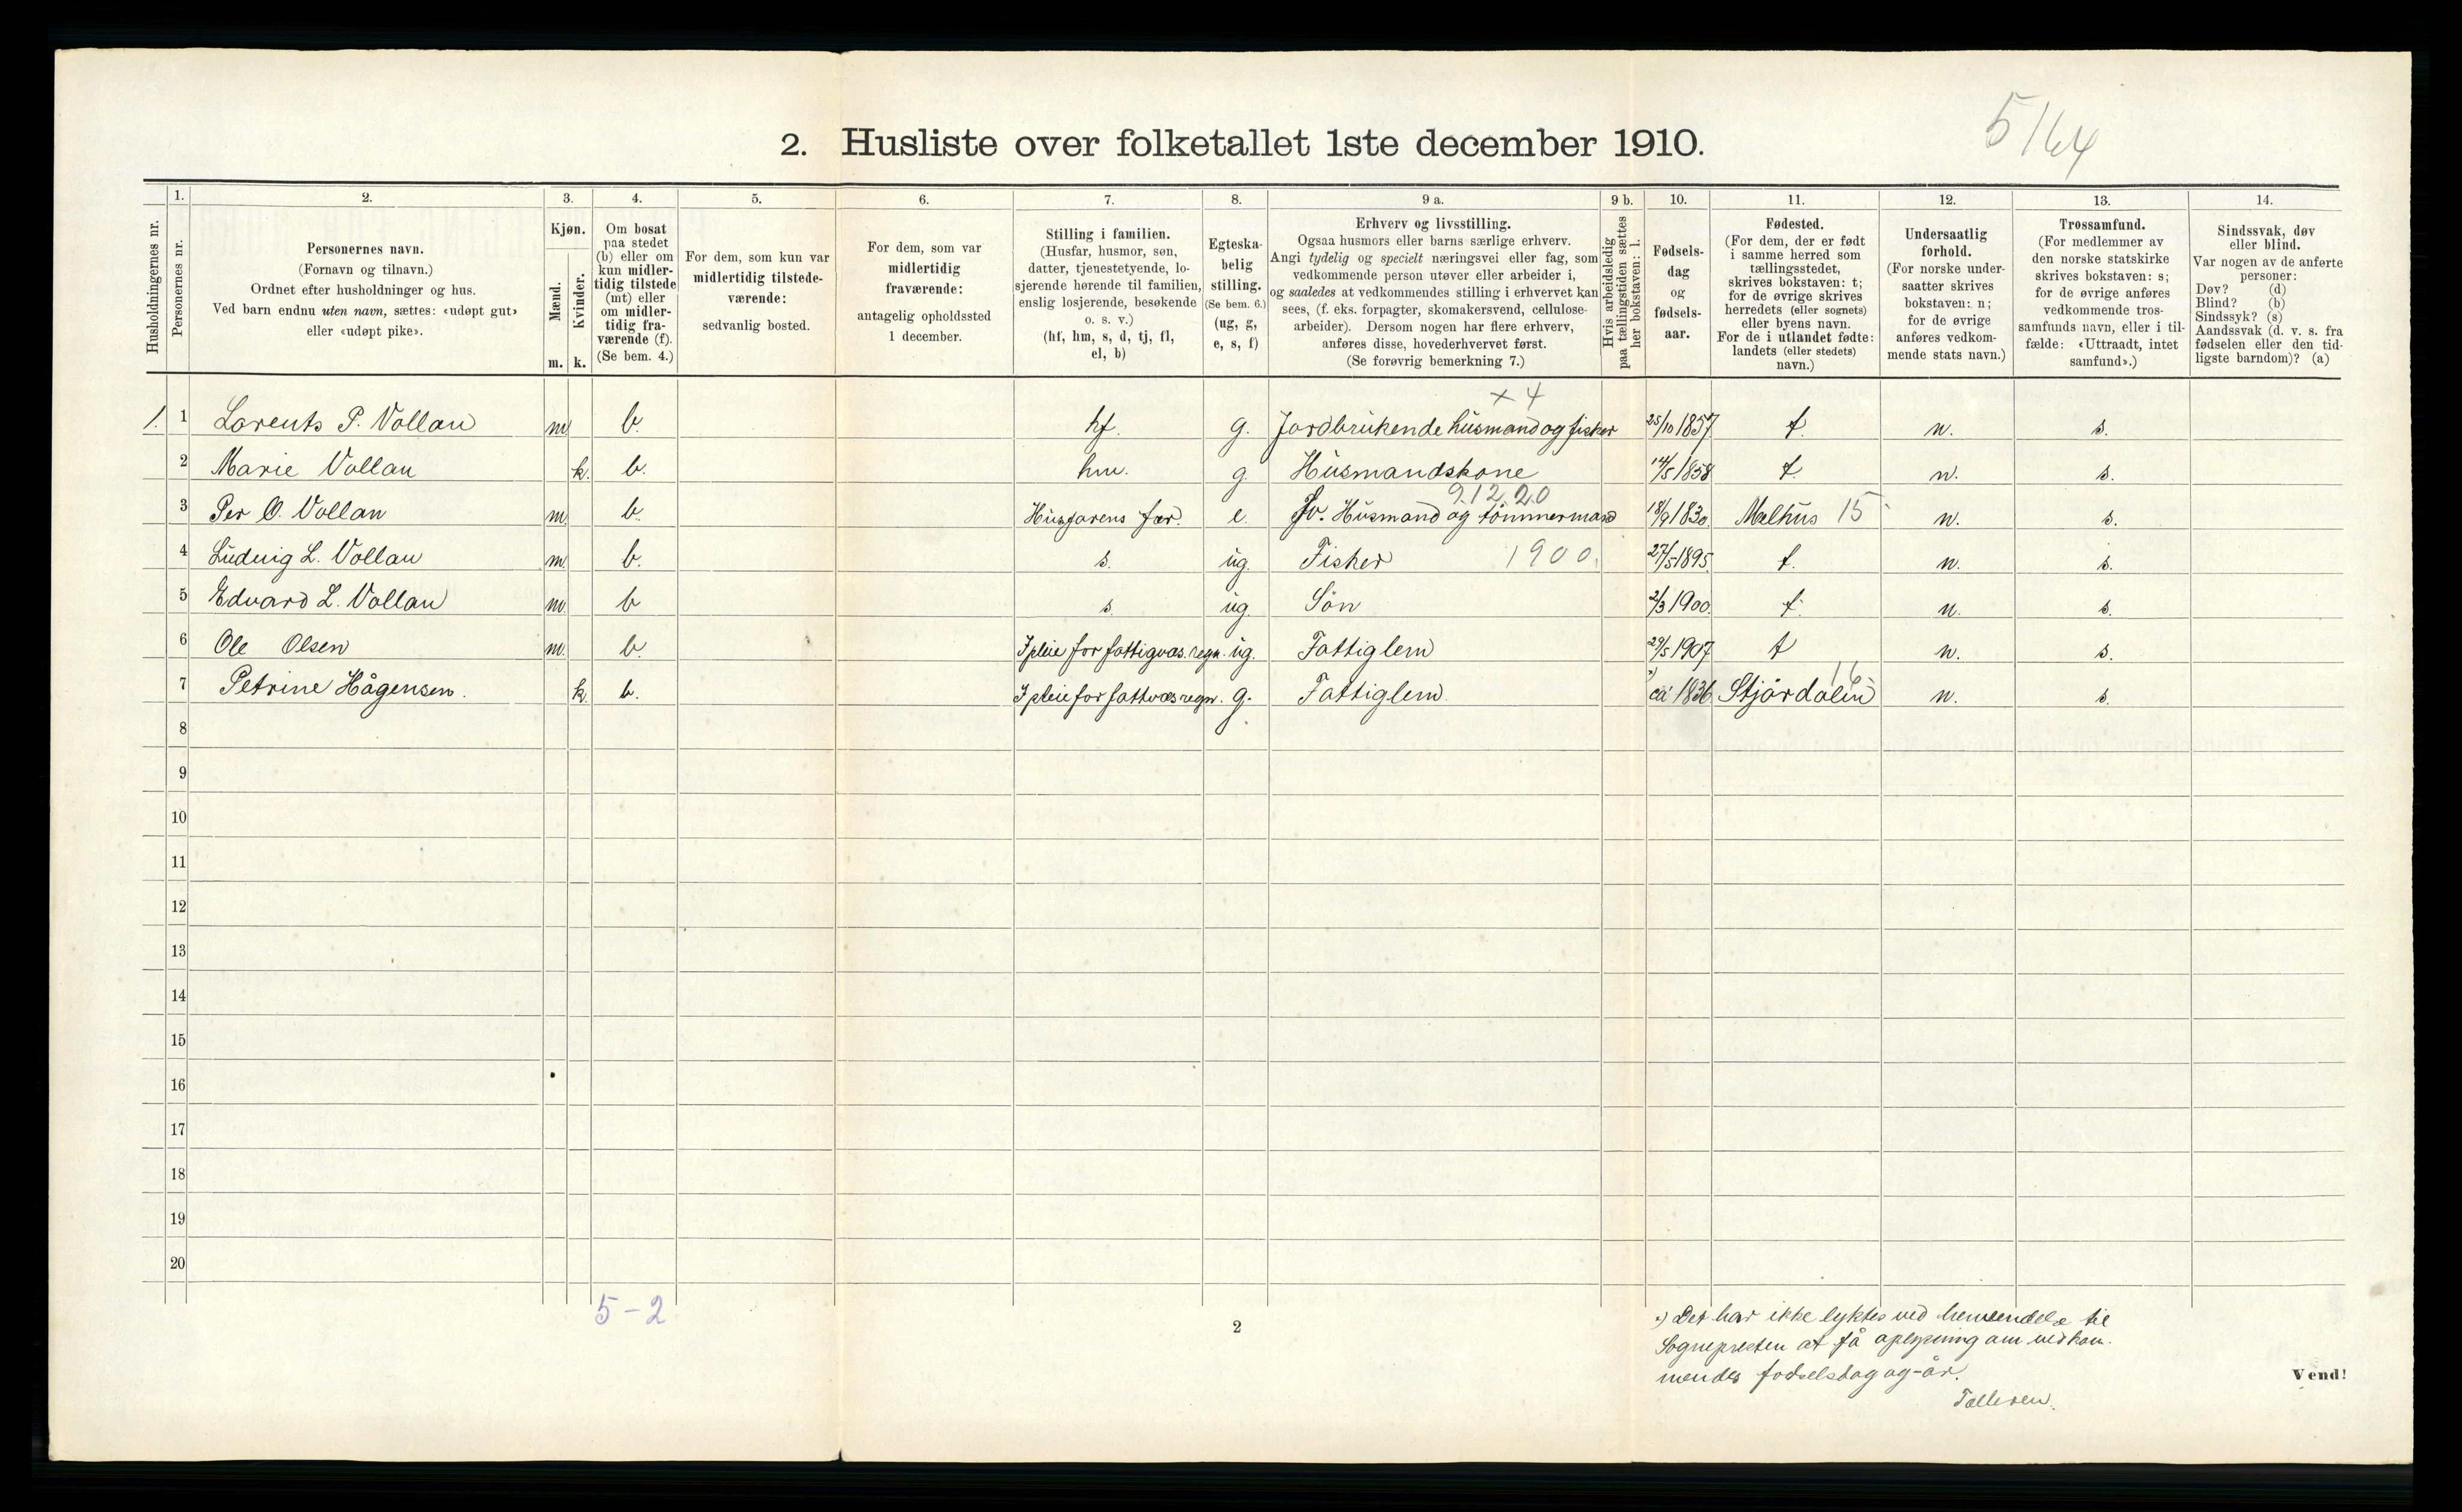 5164
2. Husliste over folketallet 1ste december 1910.
Husholdningernes nr.
1.
Personernes nr.
2.
Personernes navn.
(Fornavn og tilnavn.)
Ordnet efter husholdninger og hus.
Ved barn endnu uten navn, sættes: «udøpt gut»
eller «udøpt pike».
3.
Kjøn.
Mænd.
Kvinder.
m. k.
4.
Om bosat
paa stedet
(b) eller om
kun midler-
tidig tilstede
(mt) eller
om midler-
tidig fra-
værende (f).
(Se bem. 4.)
5.
For dem, som kun var
midlertidig tilstede-
værende:
sedvanlig bosted.
6.
For dem, som var
midlertidig
fraværende:
antagelig opholdssted
1 december.
7.
Stilling i familien.
(Husfar, husmor, søn,
datter, tjenestetyende, lo-
sjerende hørende til familien,
enslig losjerende, besøkende
o. s. v.)
(hf, hm, s, d, tj, fl,
el, b)
8.
Egteska-
belig
stilling.
(Se bem. 6.)
(ug, g,
e, s, f)
9 a.
Erhverv og livsstilling.
Ogsaa husmors eller barns særlige erhverv.
Angi tydelig og specielt næringsvei eller fag, som
vedkommende person utøver eller arbeider i,
og saaledes at vedkommendes stilling i erhvervet kan
sees, (f. eks. forpagter, skomakersvend, cellulose-
arbeider). Dersom nogen har flere erhverv,
anføres disse, hovederhvervet først.
(Se forøvrig bemerkning 7.)
9 b.
Hvis arbeidsledig
paa tællingstiden sættes
her bokstaven: l.
10.
Fødsels-
dag
og
fødsels-
aar.
11.
Fødested.
(For dem, der er født
i samme herred som
tællingsstedet,
skrives bokstaven: t;
for de øvrige skrives
herredets (eller sognets)
eller byens navn.
For de i utlandet fødte:
landets (eller stedets)
navn.)
12.
Undersaatlig
forhold.
(For norske under-
saatter skrives
bokstaven: n;
for de øvrige
anføres vedkom-
mende stats navn.)
13.
Trossamfund.
(For medlemmer av
den norske statskirke
skrives bokstaven: s;
for de øvrige anføres
vedkommende tros-
samfunds navn, eller i til-
fælde: «Uttraadt, intet
samfund».)
14.
Sindssvak, døv
eller blind.
Var nogen av de anførte
personer:
Døv? (d)
Blind? (b)
Sindssyk? (s)
Aandssvak (d. v. s. fra
fødselen eller den tid-
ligste barndom)? (a)
x 4
1. 1 Lorents P. Vollan m b. hf. g. Jordbrukende husmand og fisker 25/10 1857 t. n. s.
2 Marie Vollan k. b. hm. g. Husmandskone 14/5 1858 t n. s.
9.12.20
3 Per O. Vollan m. b. Husfarens far. e. Fv. Husmand og tömmermand 18/9 1830 Melhus 15 n. s.
4 Ludvig L. Vollan m. b. s. ug. Fisker 1900. 27/5 1895. t. n. s.
5 Edvard L. Vollan m. b s. ug. Sön 2/3 1900. t. n. s.
6 Ole Olsen m. b. I pleie for fattigvæs. regn. ug. Fattiglem 29/5 1907 t n. s.
16
7 Petrine Hågensen. k. b. I pleie for fattvæs regn. g. Fattiglem *) ca 1836. Stjördalen n. s.
8
9
10
11
12
13
14
15
16
17
18
19
20
5-2
2
*) Det har ikke lyktes ved henvendelse til
Sognepresten at få oplysning om vedkom-
mendes födselsdag og -år.
Tælleren.
Vend!